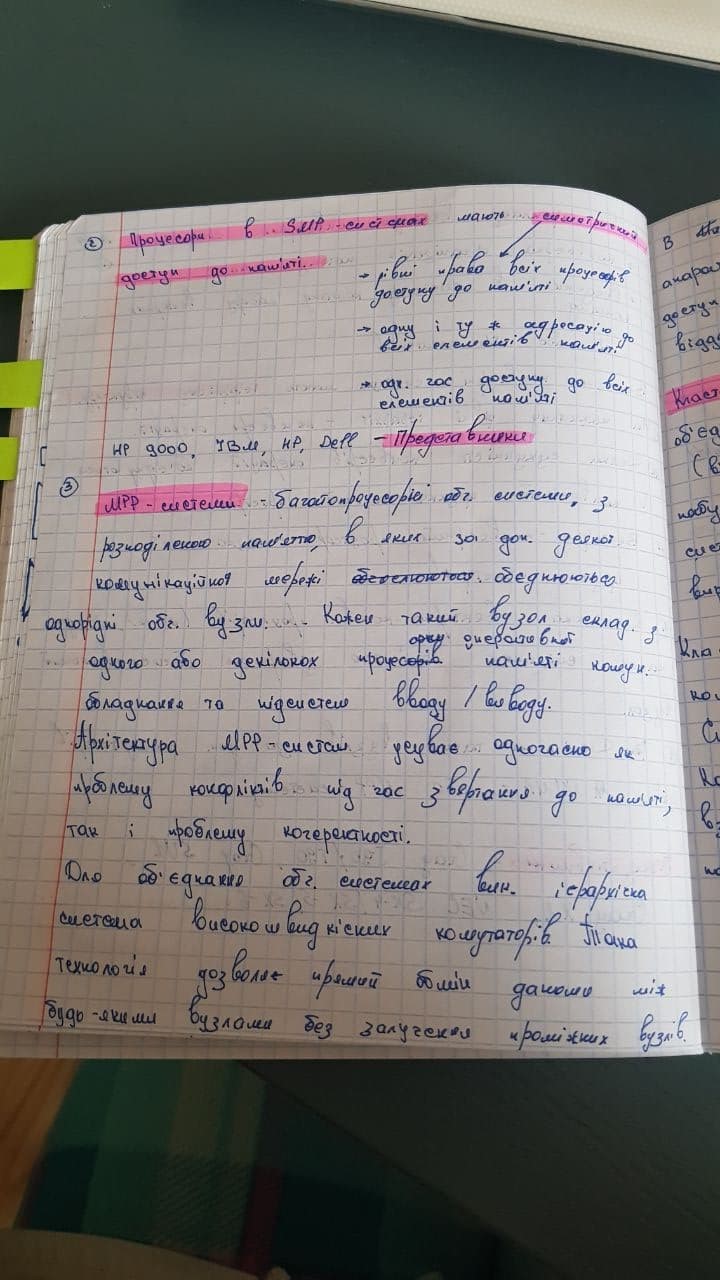 ② Процесори в SMP-системах мають симетричний
доступ до пам'яті.
→ рівні права всіх процесорів
доступу до пам'яті
→ одну і ту ж адресацію до
всіх елементів пам'яті
→ одн. час доступу до всіх
елементів пам'яті
HP 9000, IBM, HP, Dell - Представники
③
MPP-системи - багатопроцесорні обч. системи, з
розподіленою пам'яттю, в яких за доп. деякої
комунікаційної мережі обєднюються
однорідні обч. вузли. Кожен такий вузол склад. з
оперативної
одного або декількох процесорів пам'яті комун.
обладнання та підсистем вводу / виводу.
Архітектура MPP-систем усуває одночасно як
проблему конфліктів під час звертання до пам'яті,
так і проблему когерентності.
Для об'єднання обч. системах вик. ієрархічна
система високошвидкісних комутаторів. Така
технологія дозволяє прямий обмін даними між
будь-якими вузлами без залучення проміжних вузлів.
В
апарат
доступ
відд
Класт
об'єд
(ві
побу
сист
вир
Кла
ком